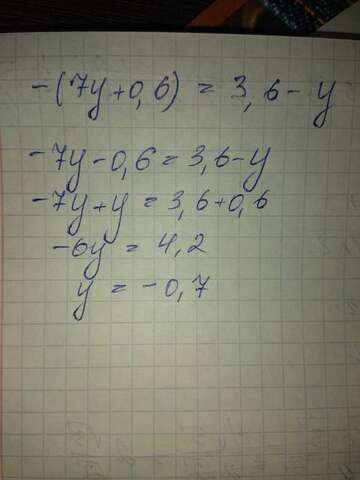 -(7y+0,6) = 3,6-y
-7y-0,6=3,6-y
-7y+y = 3,6+0,6
-6y = 4,2
y = -0,7